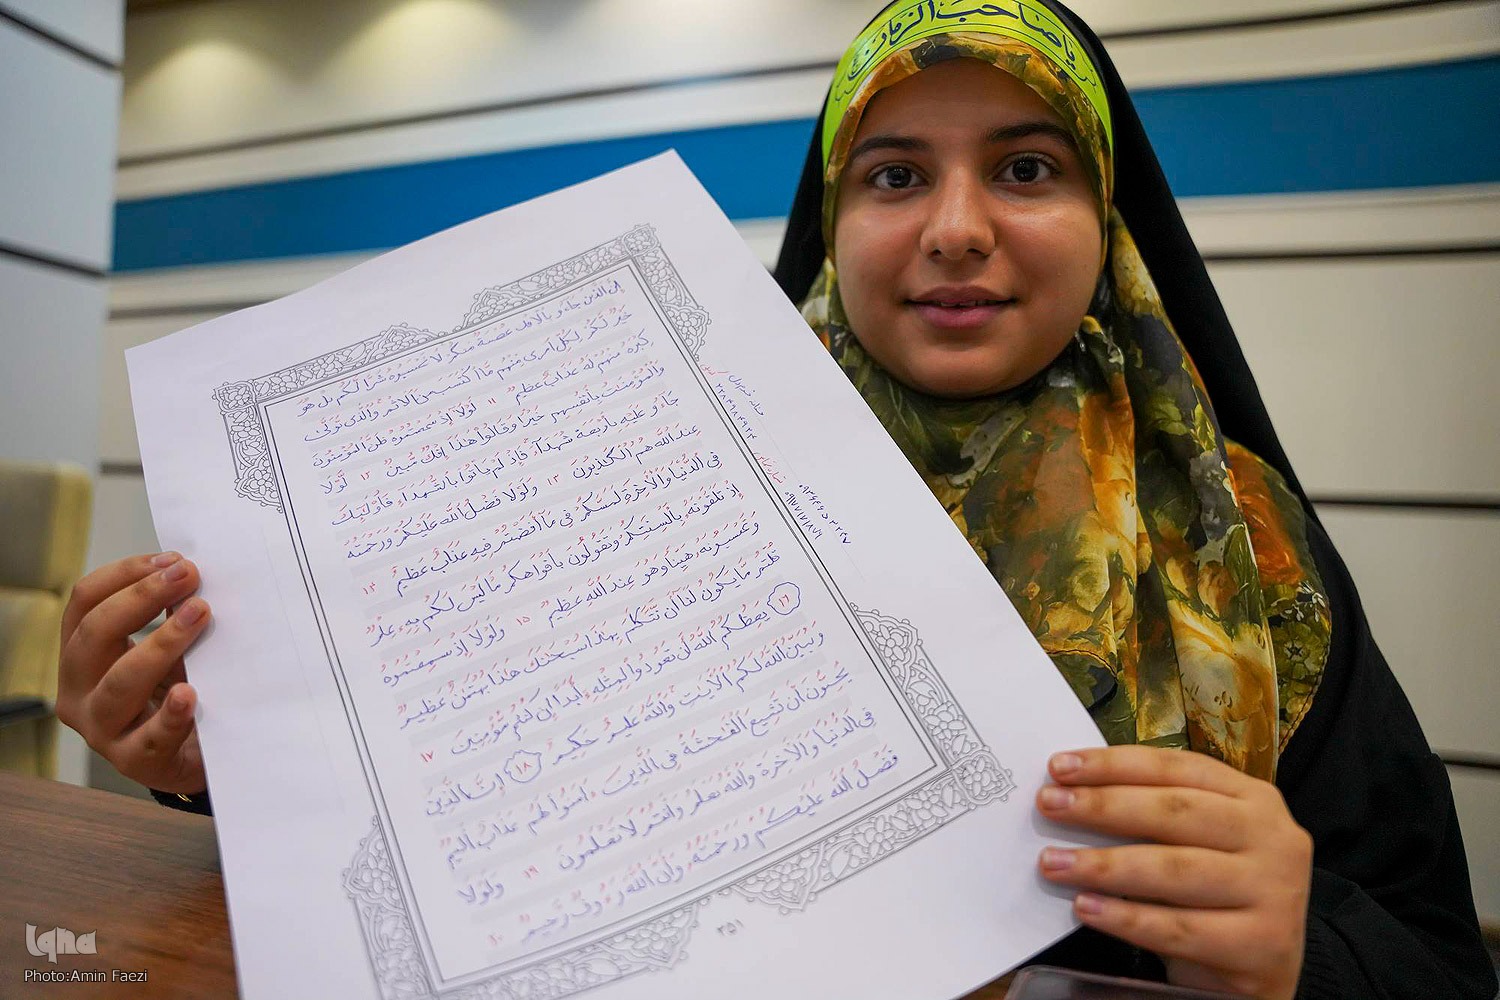 یا صاحب الزمان
إِنَّ الَّذِينَ جَاءُو بِالْإِفْكِ عُصْبَةٌ مِنْكُمْ لَا تَحْسَبُوهُ شَرًّا لَكُمْ بَلْ هُوَ
خَيْرٌ لَكُمْ لِكُلِّ امْرِئٍ مِنْهُمْ مَا اكْتَسَبَ مِنَ الْإِثْمِ وَالَّذِي تَوَلَّىٰ
كِبْرَهُ مِنْهُمْ لَهُ عَذَابٌ عَظِيمٌ ١١ لَوْلَا إِذْ سَمِعْتُمُوهُ ظَنَّ الْمُؤْمِنُونَ
وَالْمُؤْمِنَٰتُ بِأَنْفُسِهِمْ خَيْرًا وَقَالُوا هَٰذَا إِفْكٌ مُبِينٌ ١٢ لَوْلَا
جَاءُو عَلَيْهِ بِأَرْبَعَةِ شُهَدَاءَ فَإِذْ لَمْ يَأْتُوا بِالشُّهَدَاءِ فَأُولَٰئِكَ
عِنْدَ اللَّهِ هُمُ الْكَٰذِبُونَ ١٣ وَلَوْلَا فَضْلُ اللَّهِ عَلَيْكُمْ وَرَحْمَتُهُ
فِي الدُّنْيَا وَالْآخِرَةِ لَمَسَّكُمْ فِي مَا أَفَضْتُمْ فِيهِ عَذَابٌ عَظِيمٌ ١٤
إِذْ تَلَقَّوْنَهُ بِأَلْسِنَتِكُمْ وَتَقُولُونَ بِأَفْوَاهِكُمْ مَا لَيْسَ لَكُمْ بِهِ عِلْمٌ
وَتَحْسَبُونَهُ هَيِّنًا وَهُوَ عِنْدَ اللَّهِ عَظِيمٌ ١٥ وَلَوْلَا إِذْ سَمِعْتُمُوهُ
قُلْتُمْ مَا يَكُونُ لَنَا أَنْ نَتَكَلَّمَ بِهَٰذَا سُبْحَٰنَكَ هَٰذَا بُهْتَٰنٌ عَظِيمٌ
١٦ يَعِظُكُمُ اللَّهُ أَنْ تَعُودُوا لِمِثْلِهِ أَبَدًا إِنْ كُنْتُمْ مُؤْمِنِينَ ١٧
وَيُبَيِّنُ اللَّهُ لَكُمُ الْآيَٰتِ وَاللَّهُ عَلِيمٌ حَكِيمٌ ١٨ إِنَّ الَّذِينَ
يُحِبُّونَ أَنْ تَشِيعَ الْفَٰحِشَةُ فِي الَّذِينَ ءَامَنُوا لَهُمْ عَذَابٌ أَلِيمٌ
فِي الدُّنْيَا وَالْآخِرَةِ وَاللَّهُ يَعْلَمُ وَأَنْتُمْ لَا تَعْلَمُونَ ١٩ وَلَوْلَا
فَضْلُ اللَّهِ عَلَيْكُمْ وَرَحْمَتُهُ وَأَنَّ اللَّهَ رَءُوفٌ رَحِيمٌ ٢٠
٣٥١
iqna
Photo:Amin Faezi